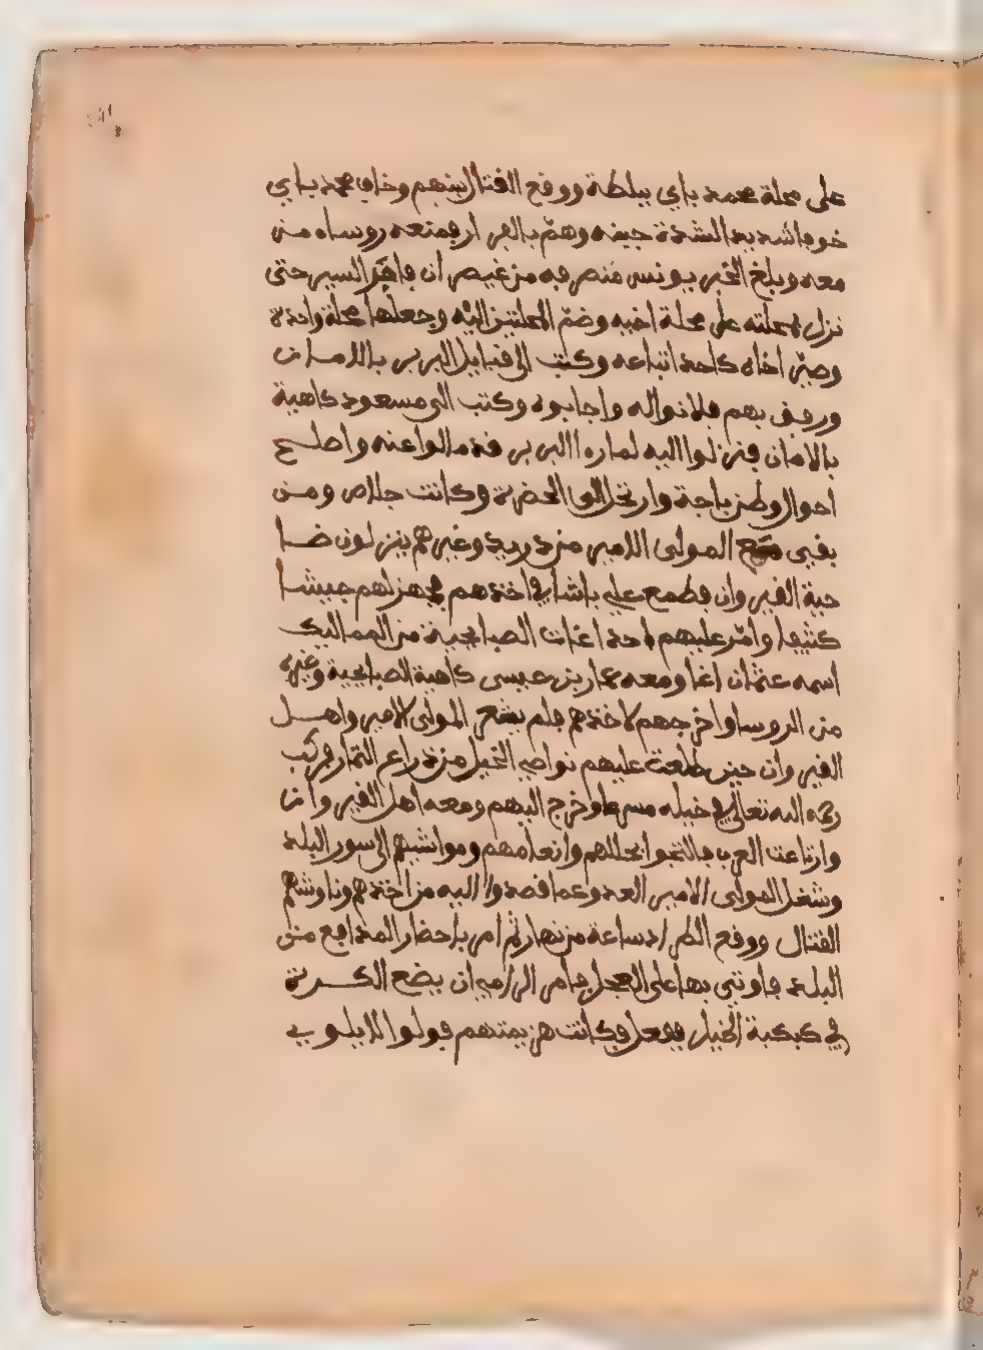 على محلة محمد باي ببلطة ووقع القتال بينهم وخاف محمد باي
خوفا شديد الشدة جبنه وهمّ بالفرار فمنعه روساه من
معه وبلغ الخبر يونس منصرفه من غيصران فاغذ السير حتى
نزل بمحلته على محلة اخيه وضم المحلتين اليه وجعلها محلة واحدة
وصيّر اخاه كاحد اتباعه وكتب الى قبايل البربر بالامان
ورفق بهم فلانوا له واجابوه وكتب الى مسعود كاهية
بالامان فنزلوا اليه لما راا البربر قد مالوا عنه واصلح
احوال وطن باجة وارتحل الى الحضرة وكانت جلاص ومن
بقي مع المولى الامير من دريد وغيرهم ينزلون ضا
حية القيروان فطمع علي باشا في اخذهم فجهز لهم جيشا
كثيفا وامّر عليهم احد اغات الصبايحية من المماليك
اسمه عثمان اغا ومعه عمار بن عيسى كاهية الصبايحية وغيره
من الروسا واخرجهم لاخذهم فلم يشعر المولى الامير واهل
القيروان حين طلعت عليهم نواصي الخيل من ذراع التمار فركب
رحمه الله تعالى في خيله مسرعا وخرج اليهم ومعه اهل القيروان
وارتاعت العرب فالتجوا بحللهم وانعامهم ومواشيهم الى سور البلد
وشغل المولى الامير العدو عما قصدوا اليه من اخذهم وناوشهم
القتال ووقع الطراد ساعة من نهار ثم امر باحضار المدافع من
البلد فاوتي بها على العجل فامر الرامي ان يضع الكرة
في كبكبة الخيل ففعل فكانت هزيمتهم فولوا لا يلوي